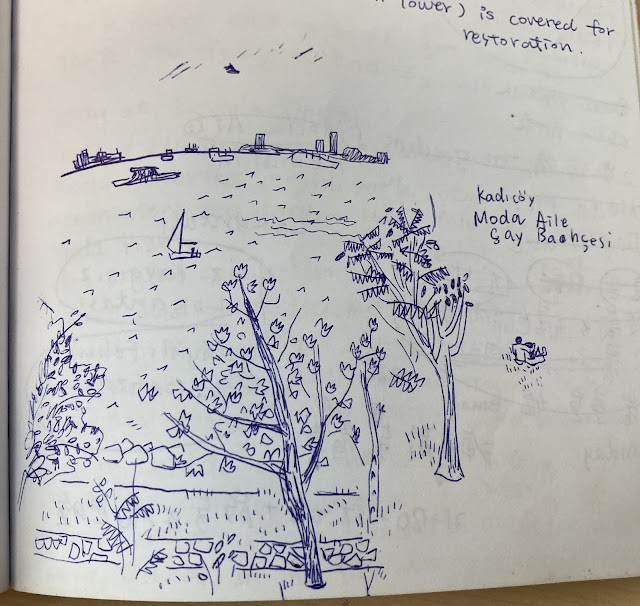 Tower) is covered for
restoration.
Kadıköy
Moda Aile
Çay Bachçesi